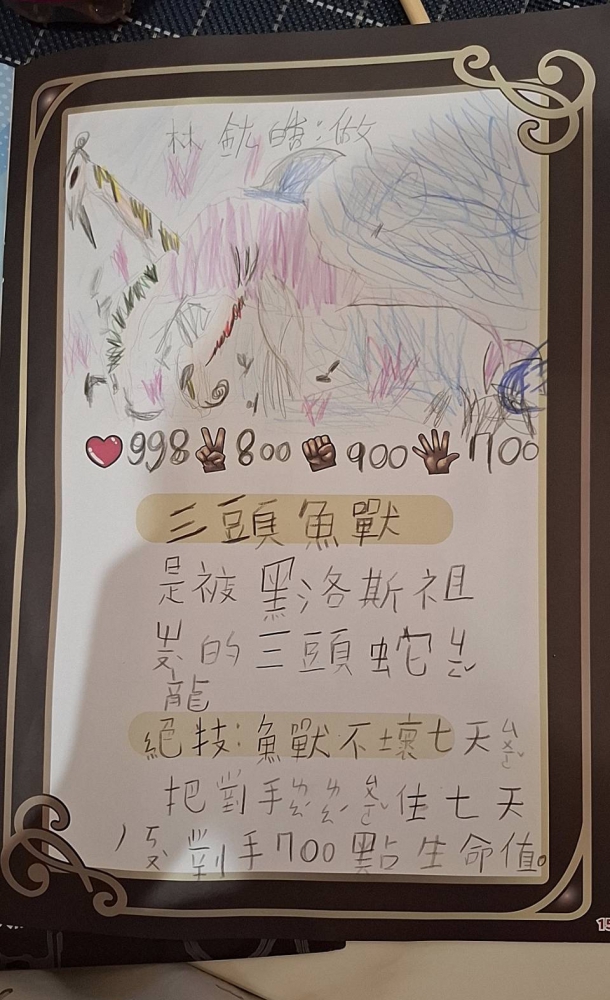 林 皓:做
998 800 900 700
三頭魚獸
是被黑洛斯祖
的三頭蛇
龍
絕技:魚獸不壞七天ㄎㄨㄣˇ
把對手ㄎㄨㄣˇ住七天
ㄎㄡˋ對手700點生命值。
15